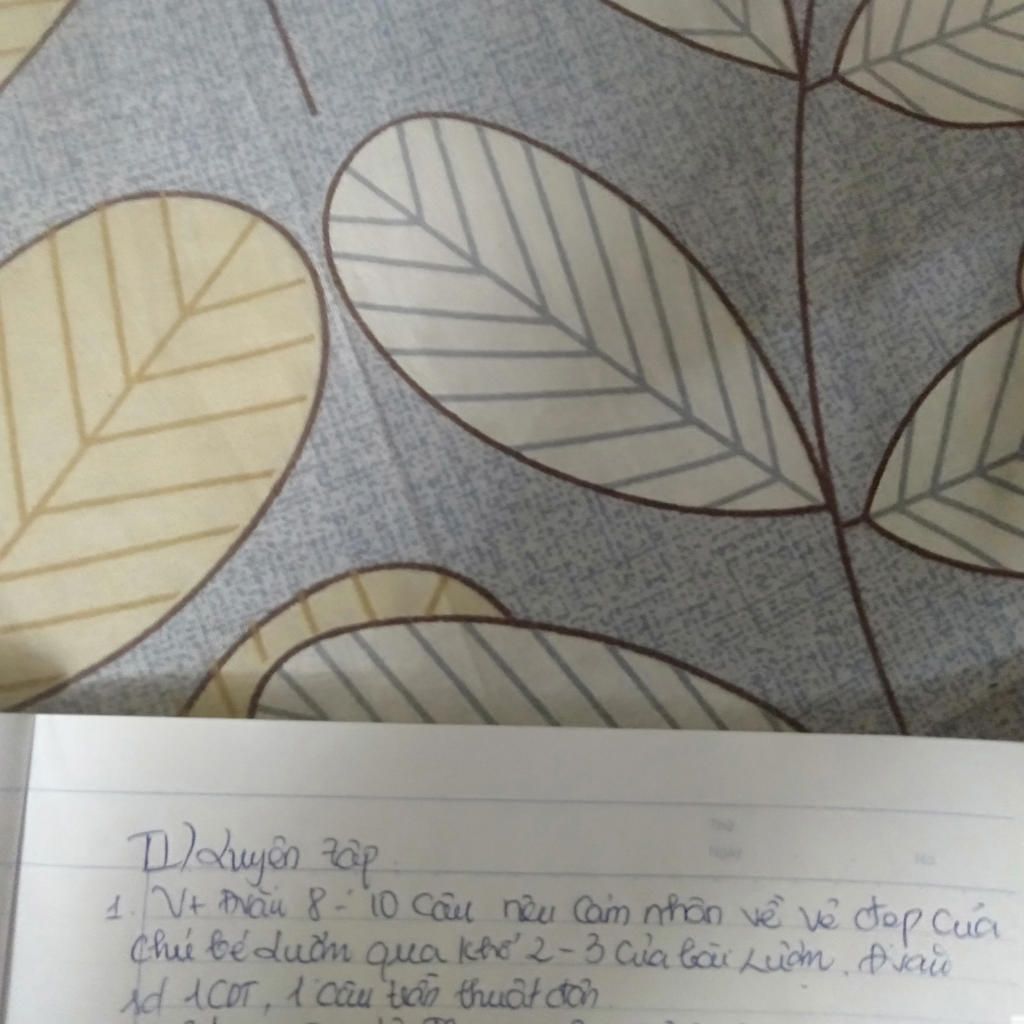 II) Luyện tập.
1. Vt đoạn 8-10 câu nêu cảm nhận về vẻ đẹp của
chú bé Lượm qua khổ 2-3 của bài Lượm. Đoạn
sd 1 CDT, 1 câu trần thuật đơn